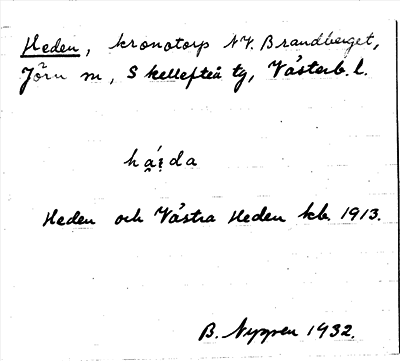 Heden, kronotorp NV. Brandberget,
Jörn sn, Skellefteå tg, Västerb. l.
Heden och Västra Heden kb. 1913.
B. Nyppen 1932.